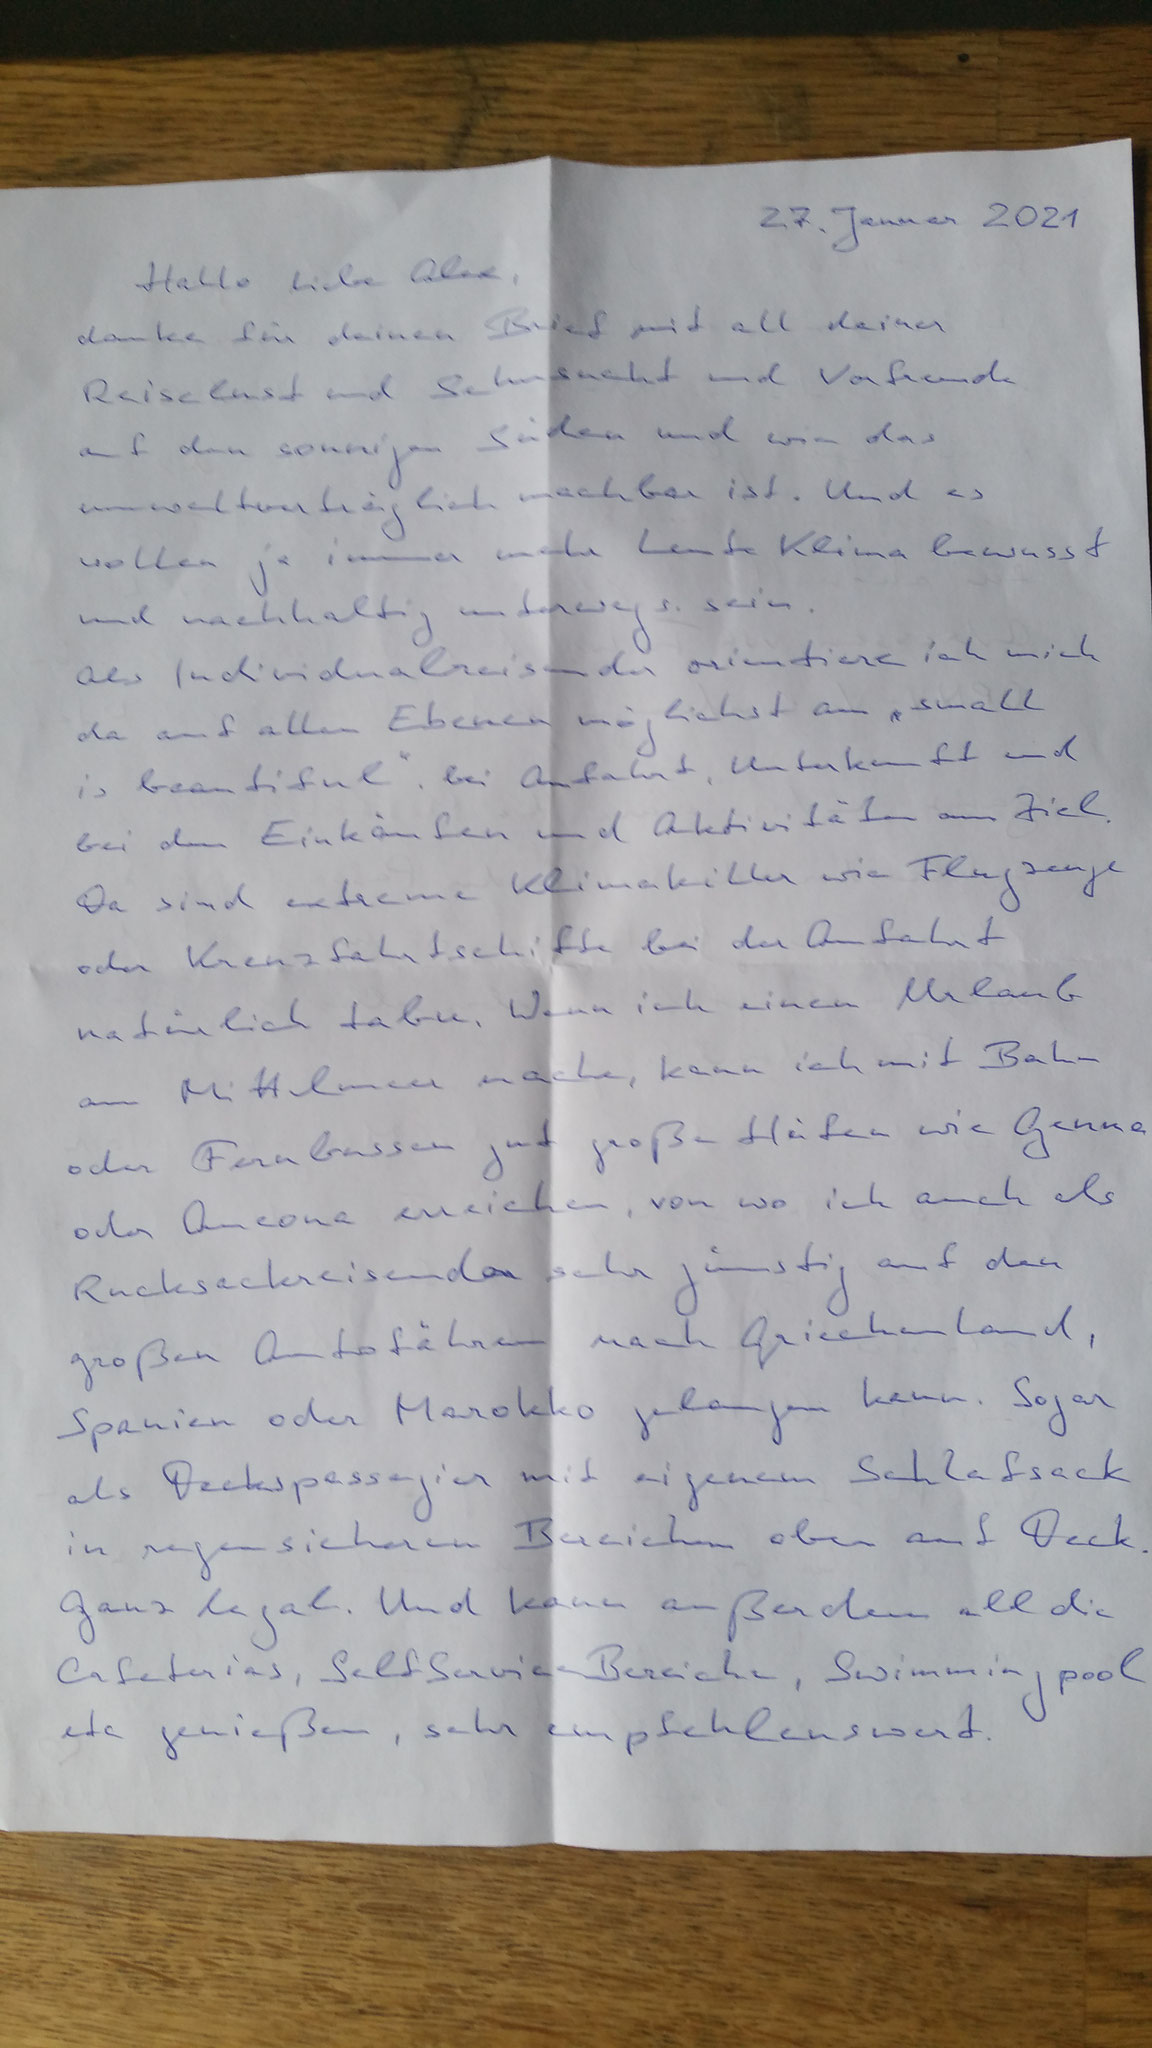 27. Januar 2021
Hallo liebe Alex,
danke für deinen Brief mit all deiner
Reiselust und Sehnsucht und Vorfreude
auf den sonnigen Süden und wie das
umweltverträglich machbar ist. Und es
wollen ja immer mehr Leute Klima bewusst
und nachhaltig unterwegs sein.
Als Individualreisender orientiere ich mich
da auf allen Ebenen möglichst an „small
is beautiful". bei Anfahrt, Unterkunft und
bei den Einkäufen und Aktivitäten am Ziel.
Da sind extreme Klimakiller wie Flugzeuge
oder Kreuzfahrtschiffe bei der Anfahrt
natürlich tabu. Wenn ich einen Urlaub
am Mittelmeer mache, kann ich mit Bahn
oder Fernbussen gut große Häfen wie Genua
oder Ancona erreichen, von wo ich auch als
Rucksackreisender sehr günstig auf den
großen Autofähren nach Griechenland,
Spanien oder Marokko gelangen kann. Sogar
als Deckspassagier mit eigenem Schlafsack
in regensicheren Bereichen oben auf Deck.
Ganz legal. Und kann außerdem all die
Cafeterias, SelfServiceBereiche, Swimmingpool
etc genießen, sehr empfehlenswert.